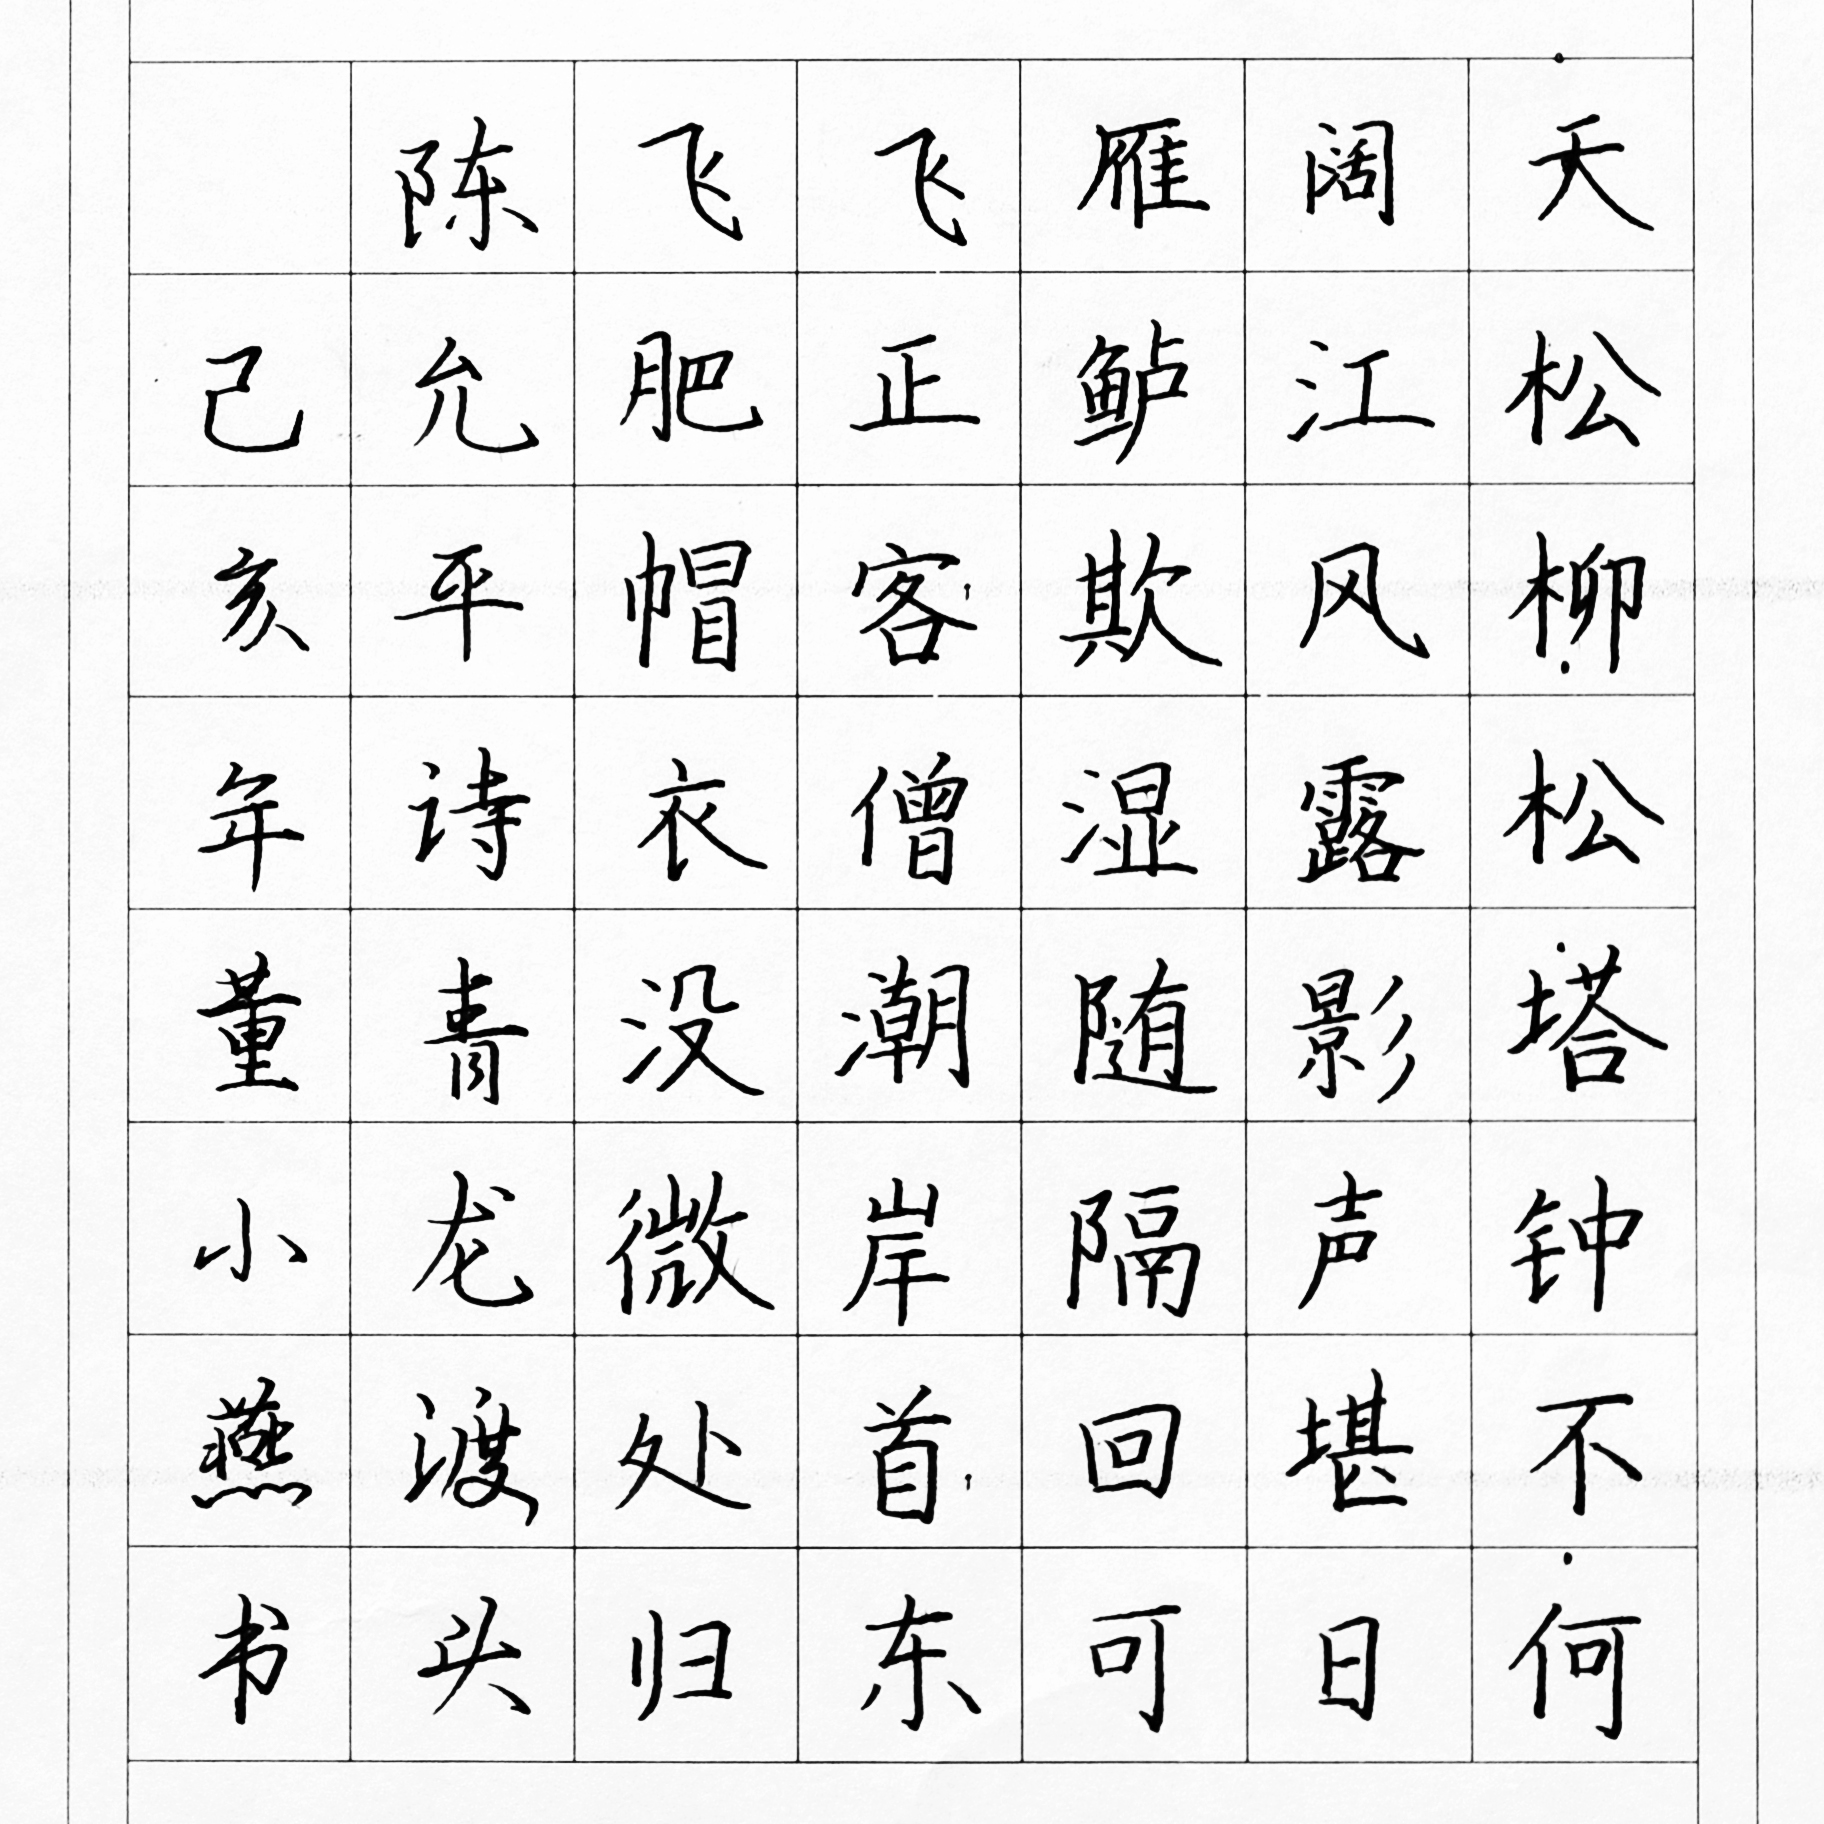 天松柳松塔钟不何
阔江风露影声堪日
雁鲈欺湿随隔回可
飞正客僧潮岸首东
飞肥帽衣没微处归
陈允平诗青龙渡头
己亥年董小燕书